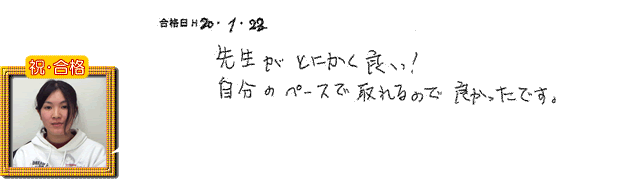 合格日 H 20・1・23
先生がとにかく良いっ!
自分のペースで取れるので良かったです。
祝・合格